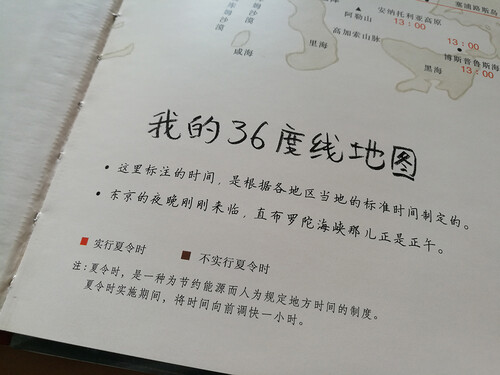 塞浦路斯岛
安纳托利亚高原
13:00
阿勒山
13:00
高加索山脉
13:00
博斯普鲁斯海
里海
黑海
咸海
我的36度线地图
• 这里标注的时间，是根据各地区当地的标准时间制定的。
• 东京的夜晚刚刚来临，直布罗陀海峡那儿正是正午。
■ 实行夏令时 ■ 不实行夏令时
注：夏令时，是一种为节约能源而人为规定地方时间的制度。
夏令时实施期间，将时间向前调快一小时。